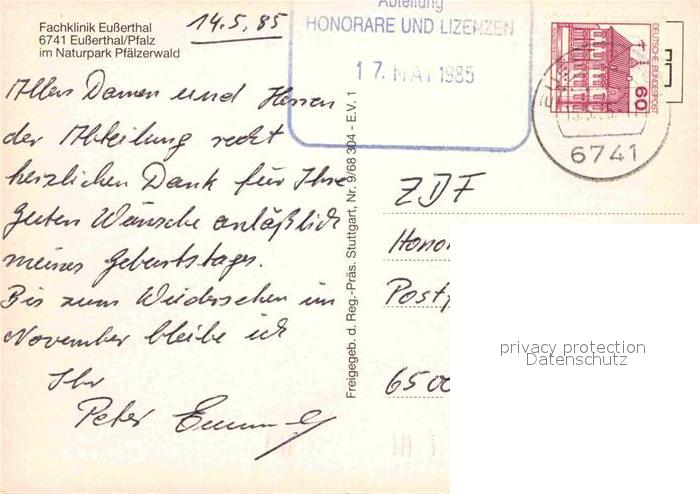 Fachklinik Eußerthal
6741 Eußerthal/Pfalz
im Naturpark Pfälzerwald
14.5.85
Abteilung
HONORARE UND LIZENZEN
17. MAI 1985
DEUTSCHE BUNDESPOST
60
6741
Allen Damen und Herren
der Abteilung recht
herzlichen Dank für Ihre
guten Wünsche anläßlich
meines Geburtstages.
Bis zum Wiedersehen im
November bleibe ich
Ihr
Peter
Freigegeb. d. Reg.-Präs. Stuttgart, Nr. 9/68 304 - E.V. 1
ZDF
Hono
Post
6500
privacy protection
Datenschutz